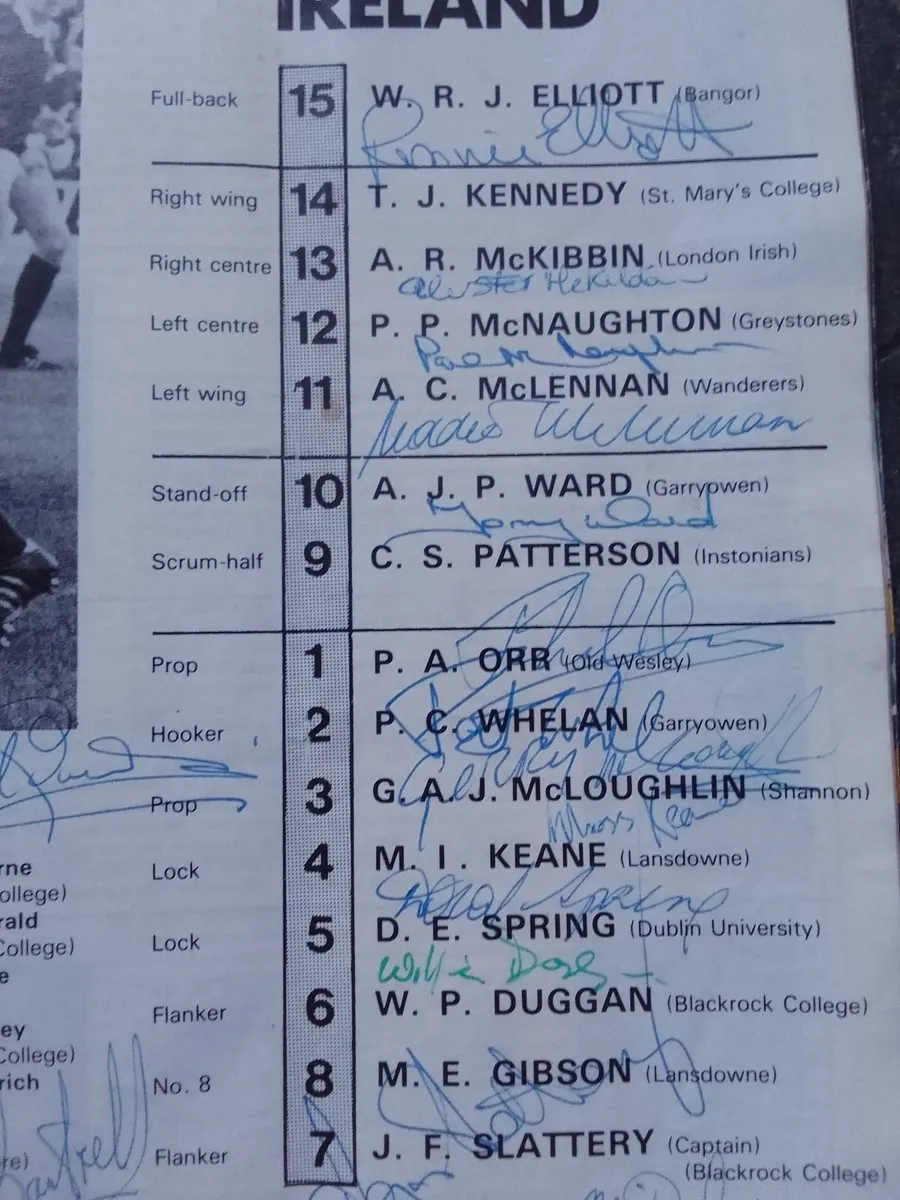 IRELAND
Full-back 15 W. R. J. ELLIOTT (Bangor)
Ronnie Elliott
Right wing 14 T. J. KENNEDY (St. Mary's College)
Right centre 13 A. R. McKIBBIN (London Irish)
Left centre 12 P. P. McNAUGHTON (Greystones)
Left wing 11 A. C. McLENNAN (Wanderers)
Stand-off 10 A. J. P. WARD (Garryowen)
Tony Ward
Scrum-half 9 C. S. PATTERSON (Instonians)
Prop 1 P. A. ORR (Old Wesley)
Hooker 2 P. C. WHELAN (Garryowen)
Prop 3 G. A. J. McLOUGHLIN (Shannon)
Moss Keane
Lock 4 M. I. KEANE (Lansdowne)
Donal Spring
Lock 5 D. E. SPRING (Dublin University)
Flanker 6 W. P. DUGGAN (Blackrock College)
No. 8 8 M. E. GIBSON (Lansdowne)
Flanker 7 J. F. SLATTERY (Captain)
(Blackrock College)
rne
ollege)
rald
College)
e
ey
College)
rich
re)